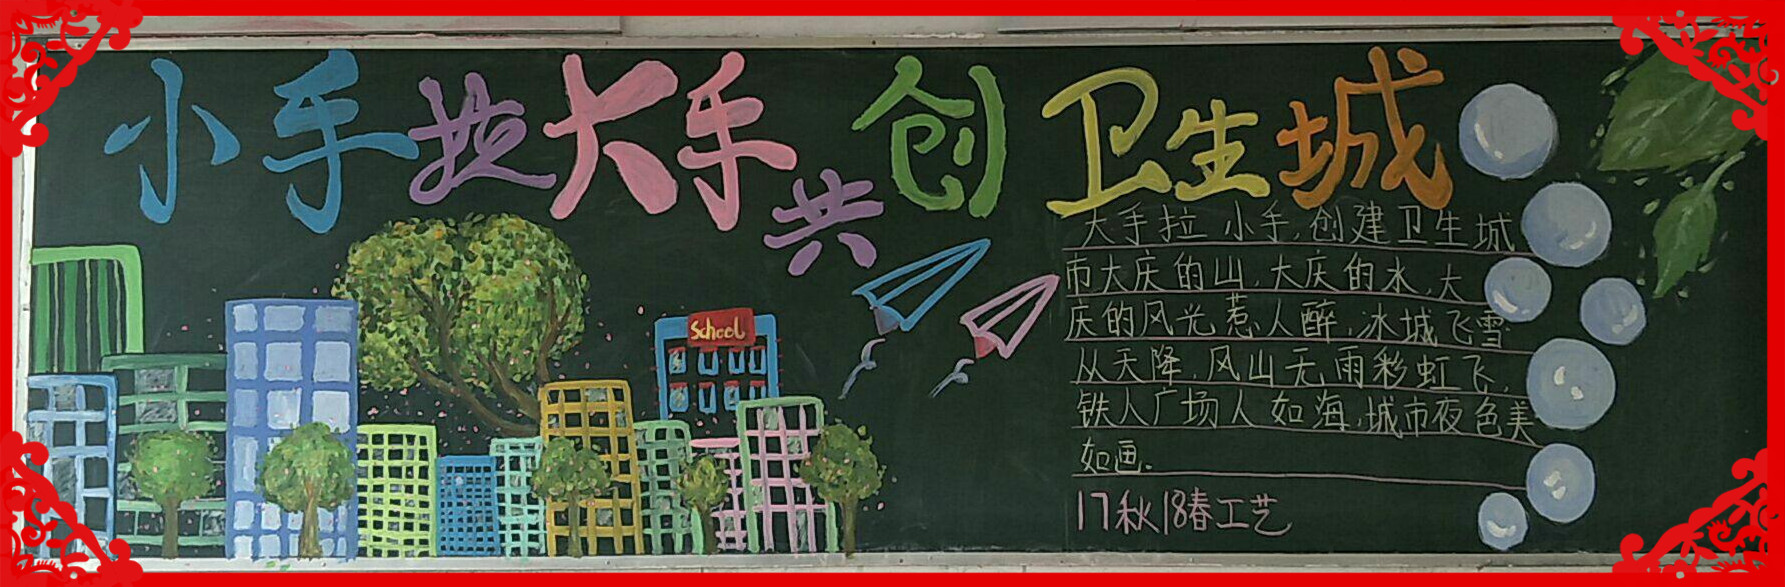 小手拉大手共创卫生城
School
大手拉小手,创建卫生城
市大庆的山,大庆的水,大
庆的风光惹人醉,冰城飞雪
从天降,风山无雨彩虹飞,
铁人广场人如海,城市夜色美
如画。
17秋18春工艺